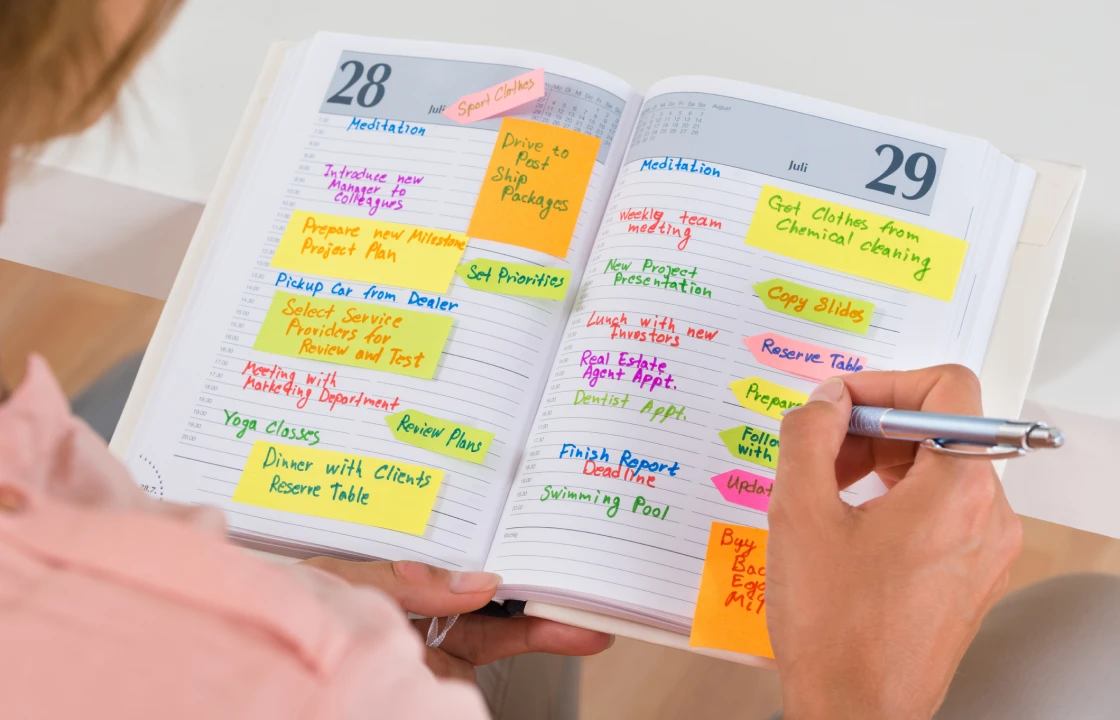 28
Juli
Sport Clothes
Meditation
Drive to
Post
Ship
Packages
Introduce new
Manager to
Colleagues
Prepare new Milestone
Project Plan
Set Priorities
Pickup Car from Dealer
Select Service
Providers for
Review and Test
Meeting with
Marketing Department
Yoga Classes
Review Plans
Dinner with Clients
Reserve Table
August
Juli
29
Meditation
Get Clothes from
Chemical cleaning
Weekly team
meeting
New Project
Presentation
Copy Slides
Lunch with new
Investors
Reserve Table
Real Estate
Agent Appt.
Prepare
Dentist Appt.
Follo
with
Finish Report
Deadline
Updat
Swimming Pool
Byy
Bac
Egg
Mil